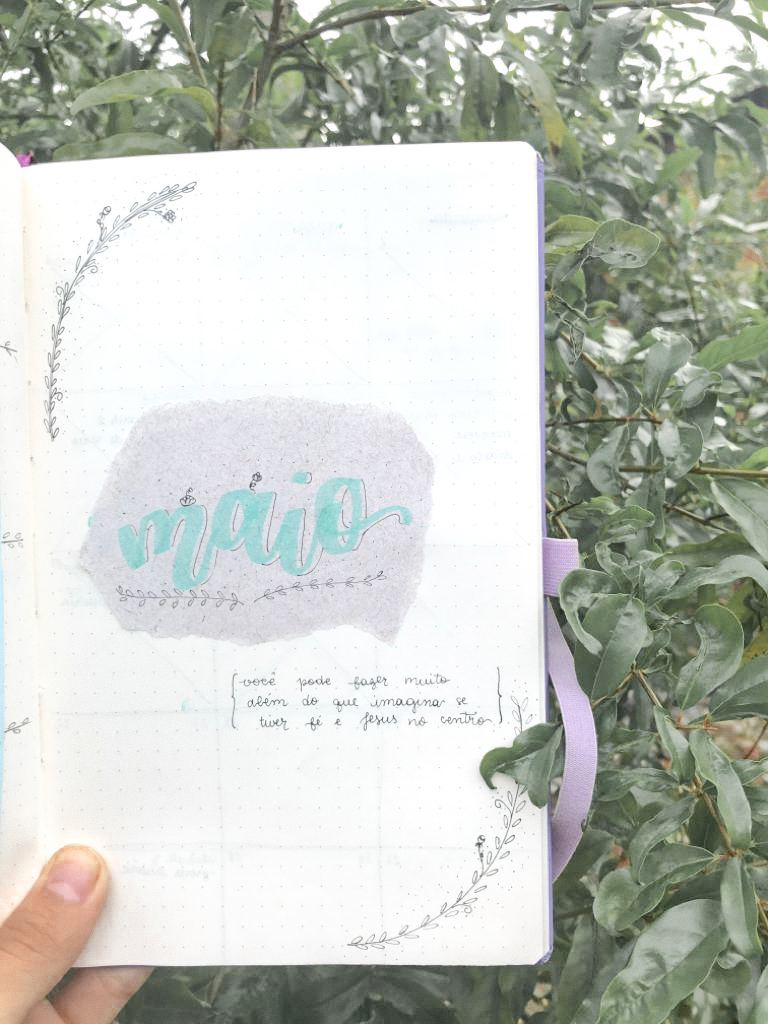 maio
você pode fazer muito
além do que imagina se
tiver fé e Jesus no centro